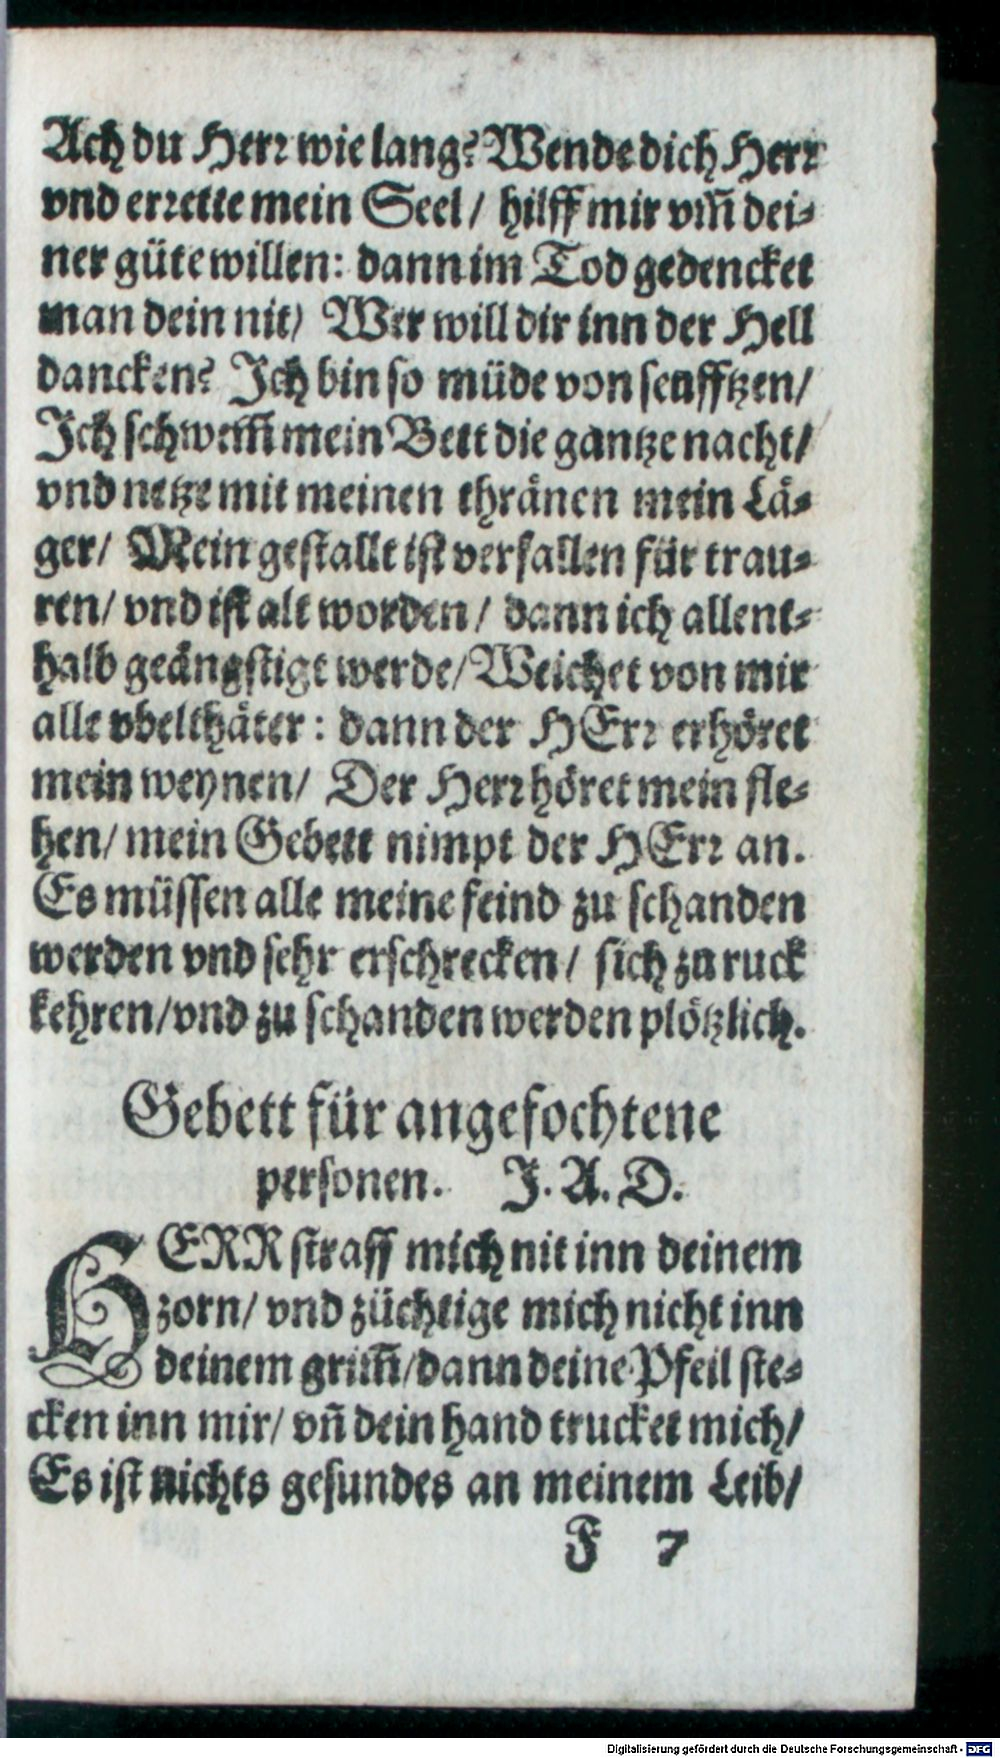 Ach du Herꝛ wie lang? Wende dich Herꝛ
vnd erꝛette mein Seel / hilff mir vm̃ dei⸗
ner güte willen: dann im Tod gedencket
man dein nit / Wer will dir inn der Hell
dancken? Ich bin so müde von seufftzen /
Ich schwem̃ mein Bett die gantze nacht /
vnd netze mit meinen thränen mein Lä⸗
ger / Mein gestallt ist verfallen für trau⸗
ren / vnd ist alt worden / dann ich allent⸗
halb geängstigt werde / Weichet von mir
alle vbelthäter: dann der HErꝛ erhöret
mein weynen / Der Herꝛ höret mein fle⸗
hen / mein Gebett nimpt der HErꝛ an.
Es müssen alle meine feind zu schanden
werden vnd sehr erschrecken / sich zu ruck
kehren / vnd zu schanden werden plötzlich.
Gebett für angefochtene
personen. J. A. D.
HERR straff mich nit inn deinem
zorn / vnd züchtige mich nicht inn
deinem grim̃ / dann deine Pfeil ste⸗
cken inn mir / vñ dein hand trucket mich /
Es ist nichts gesundes an meinem Leib /
F 7
Digitalisierung gefördert durch die Deutsche Forschungsgemeinschaft - DFG